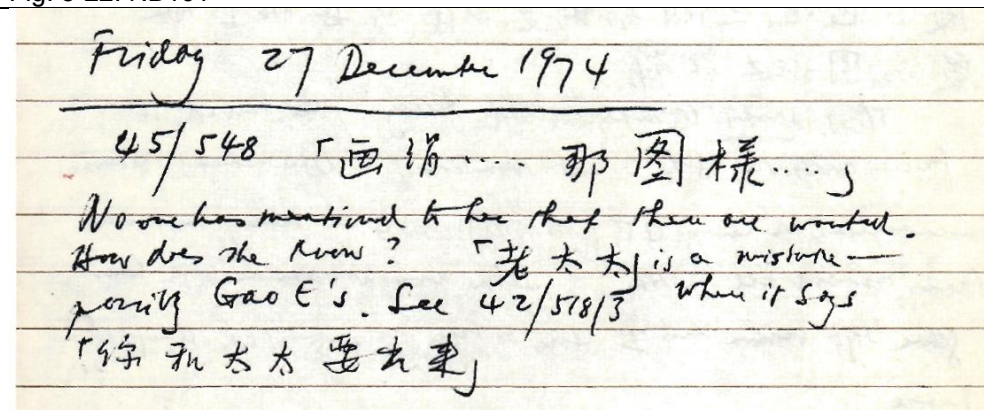 Friday 27 December 1974
45/548 「画绢.... 那图樣....」
No one has mentioned to her that these are wanted.
How does she know? 「老太太」 is a mistake —
possibly Gao E's. See 42/518/3 where it says
「你和太太要 来」